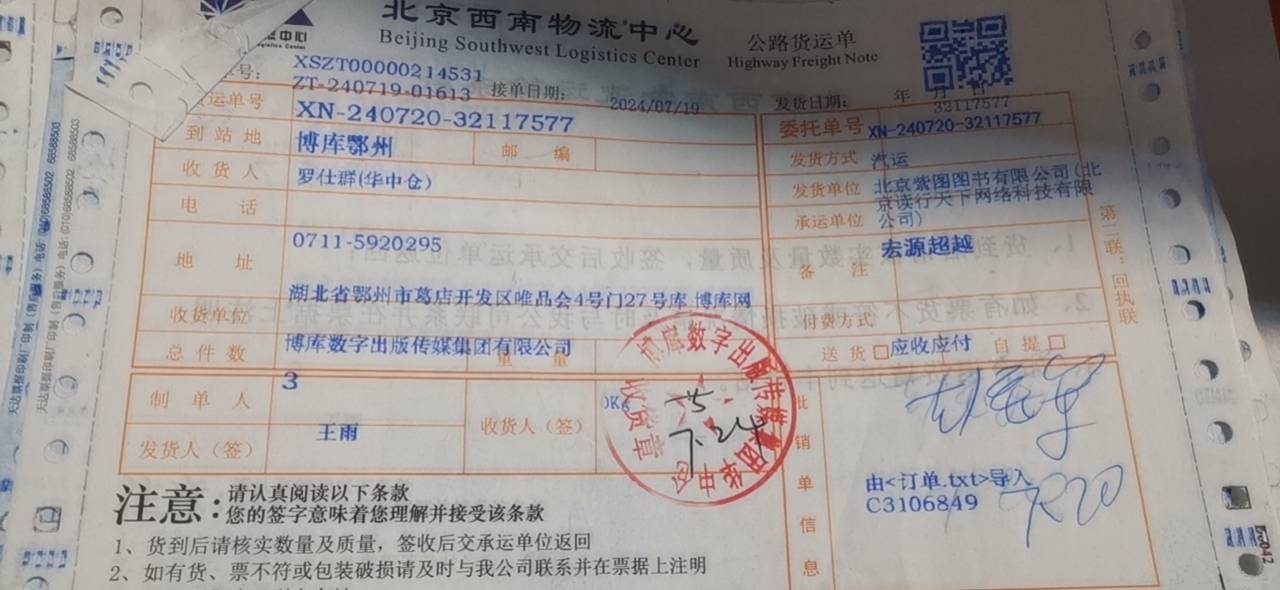 北京西南物流中心
Beijing Southwest Logistics Center
公路货运单
Highway Freight Note
XSZT00000214531
ZT-240719-01613
接单日期: 2024/07/19
发货日期: 年 月 日
32117577
货运单号 XN-240720-32117577
委托单号 XN-240720-32117577
到站地 博库鄂州 邮编
发货方式 汽运
收货人 罗仕群(华中仓)
发货单位 北京紫图图书有限公司(北京读行天下网络科技有限公司)
电话
承运单位
地址 0711-5920295
备注 宏源超越
湖北省鄂州市葛店开发区唯品会4号门27号库 博库网
收货单位 博库数字出版传媒集团有限公司
付费方式
总件数 3 重量
送货 应收应付 自提
制单人 王雨
收货人(签)
发货人(签)
批销单信息
由<订单.txt>导入
C3106849
7.20
博库数字出版传媒集团华中仓
收货章
7.24
第二联:回执联
注意:
请认真阅读以下条款
您的签字意味着您理解并接受该条款
1、货到后请核实数量及质量，签收后交承运单位返回
2、如有货、票不符或包装破损请及时与我公司联系并在票据上注明